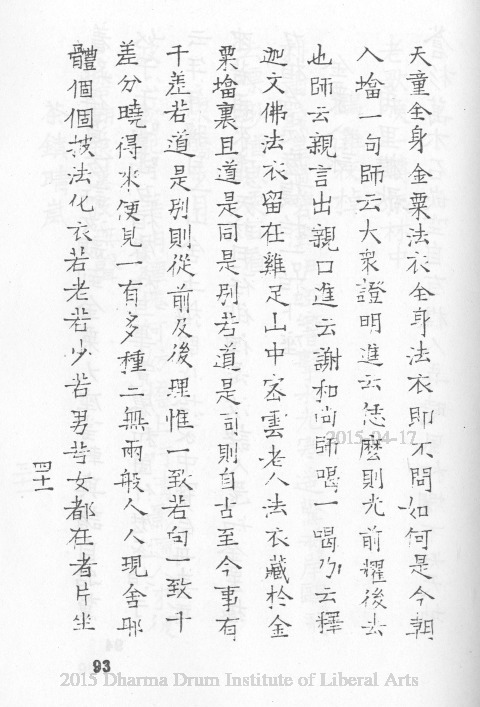 天童全身金粟法衣全身法衣即不問如何是今朝
入墖一句師云大衆證明進云恁麼則光前耀後去
也師云親言出親口進云謝和尚師喝一喝乃云釋
迦文佛法衣留在雞足山中密雲老人法衣藏於金
粟墖裏且道是同是別若道是同則自古至今事有
千差若道是別則從前及後理惟一致若向一致千
差分曉得來便見一有多種二無兩般人人現舍那
體個個披法化衣若老若少若男若女都在者片坐
四十一
93
2015-04-17
2015 Dharma Drum Institute of Liberal Arts